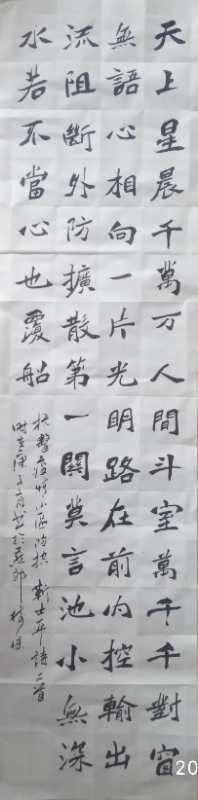 天上星晨千萬万人間斗室萬千千對窗
無語心相向一片光明路在前内控輸出
流阻斷外防擴散第一關莫言池小無深
水若不當心也覆船
抗擊疫情小區防控 靳士平詩二首
時在庚子
20